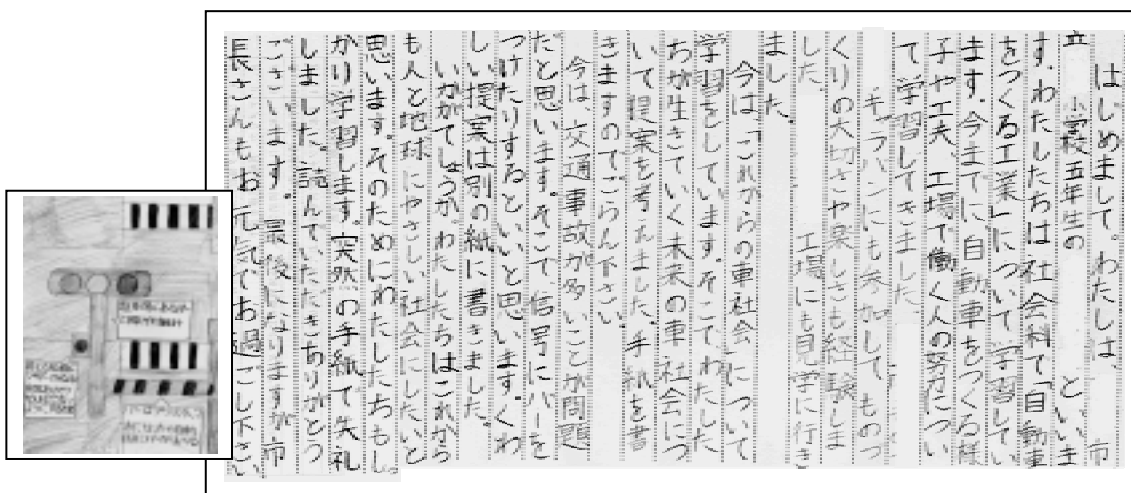 はじめまして。わたしは、市
立 小学校五年生の といいま
す。わたしたちは社会科で「自動車
をつくる工業」について学習してい
ます。今までに自動車をつくる様
子や工夫、工場で働く人の努力につい
て学習してきました。
キッラバンにも参加して、ものづ
くりの大切さや楽しさも経験しま
した。 工場にも見学に行き
ました。
今は「これからの車社会」について
学習をしています。そこでわたした
ちが生きていく未来の車社会につ
いて提案を考えました。手紙を書
きますのでごらん下さい。
今は、交通事故が多いことが問題
だと思います。そこで信号にバーを
つけたりするといいと思います。くわ
しい提案は別の紙に書きました。
いかがでしょうか。わたしたちはこれから
も人と地球にやさしい社会にしたいと
思います。そのためにわたしたちもし
かり学習します。突然の手紙で失礼
しました。読んでいただきありがとう
ございます。最後になりますが、市
長さんもお元気でお過ごし下さい。